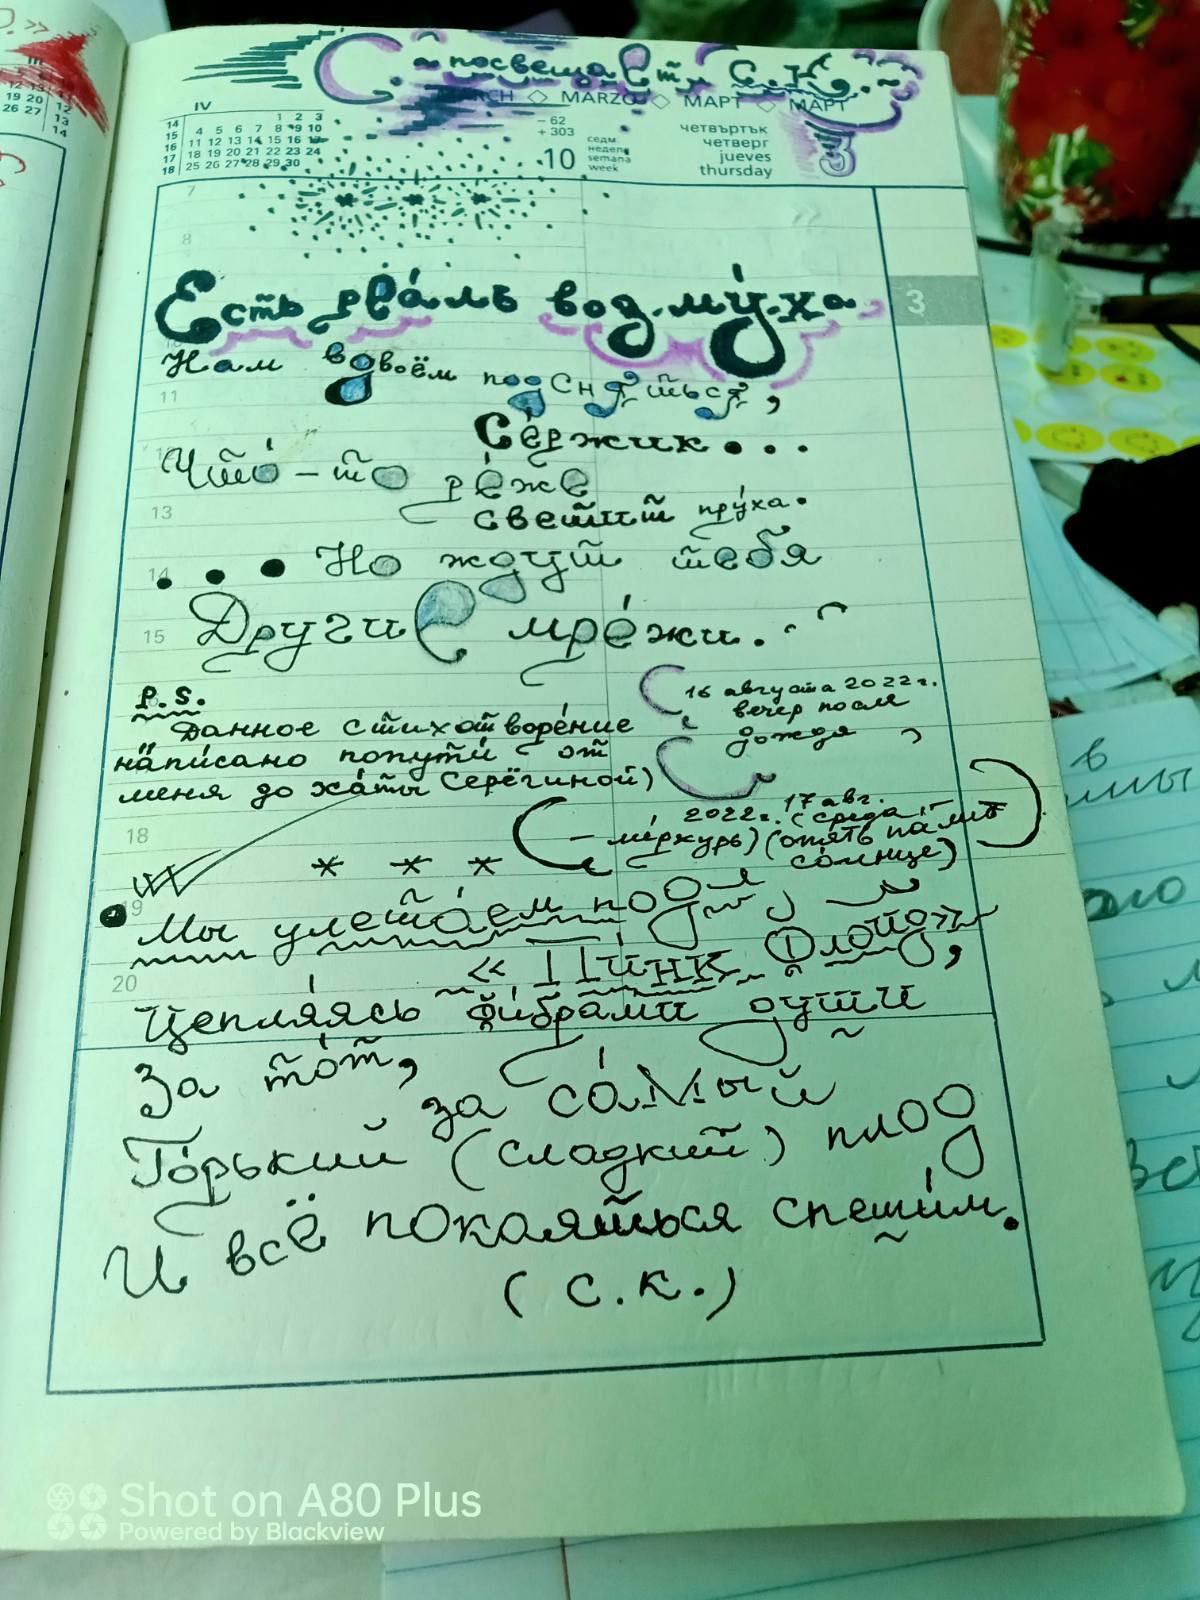 ~ посвещаЕтся С.К. ~
MARZO ◇ МАРТ ◇ МАРТ
IV
14 1 2 3
15 4 5 6 7 8 9 10
16 11 12 13 14 15 16 17
17 18 19 20 21 22 23 24
18 25 26 27 28 29 30
- 62
+ 303
10
седм.
неделя
semana
week
четвъртък
четверг
jueves
thursday
3
7
8
Есть рва́ль воз.му́.ха
3
Нам вдвоём подсняться,
11
Сержик...
Что́-то ре́же
светит пру́ха.
13
... Но ждут тебя
14
Другие мре́жи...
15
P.S.
16 августа 2022г.
вечер после
дождя
Данное стихотворе́ние
на́писано попути́ (от
меня до ха́ты Серёгиной)
17 авг.
2022г. (среда
- ме́ркурь) (опять па́лит
со́лнце)
18
* * *
19
Мы улета́ем под
«Пинк Флойд»,
20
Цепля́ясь фи́брами души
За то́т,
за са́мый
Го́рький (сладкий) плод
И всё покаяться спеши́м.
(С.К.)
Shot on A80 Plus
Powered by Blackview